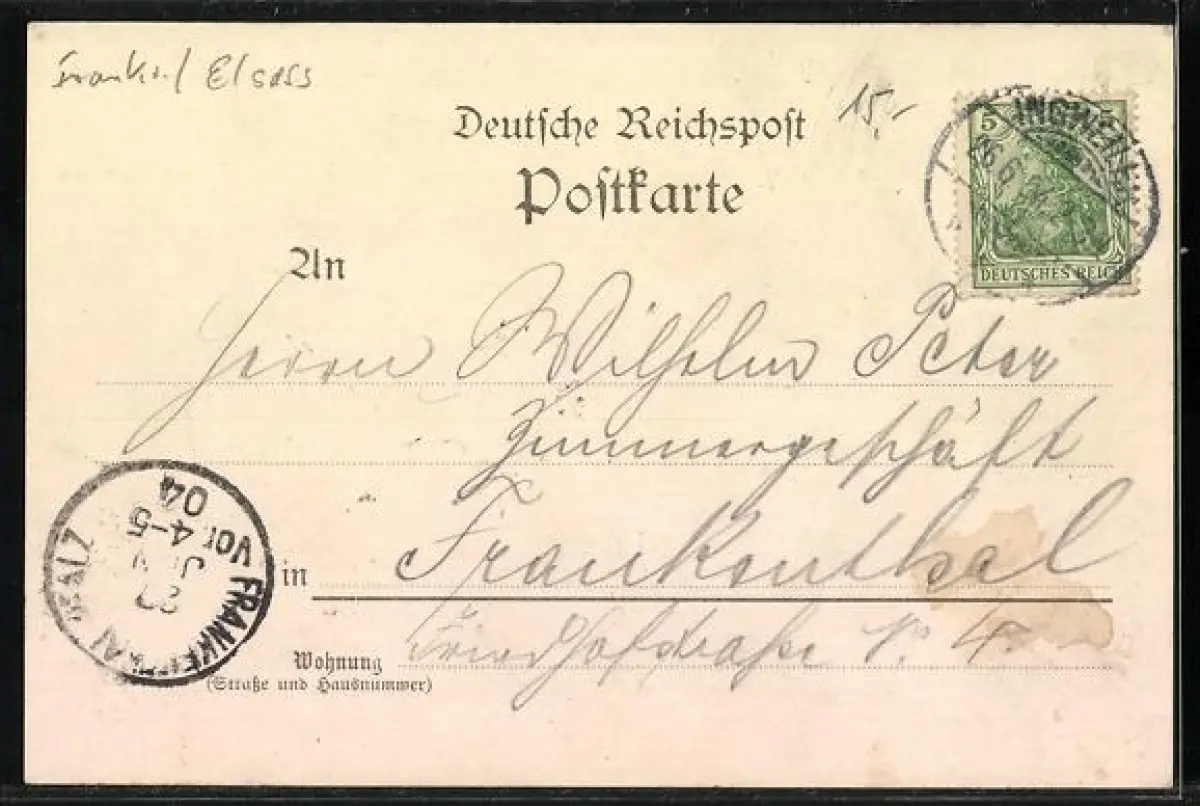 Frankr./ Elsass
15,-
Deutsche Reichspost
Postkarte
5
INGWEILER
26.6.
DEUTSCHES REICH
An
Herrn Wilhelm Peter
Zimmergeschäft
in Frankenthal
Friedhofstraße N. 4.
Wohnung
(Straße und Hausnummer)
FRANKENTHAL PFALZ
27
JUN
Vor 4-5
04